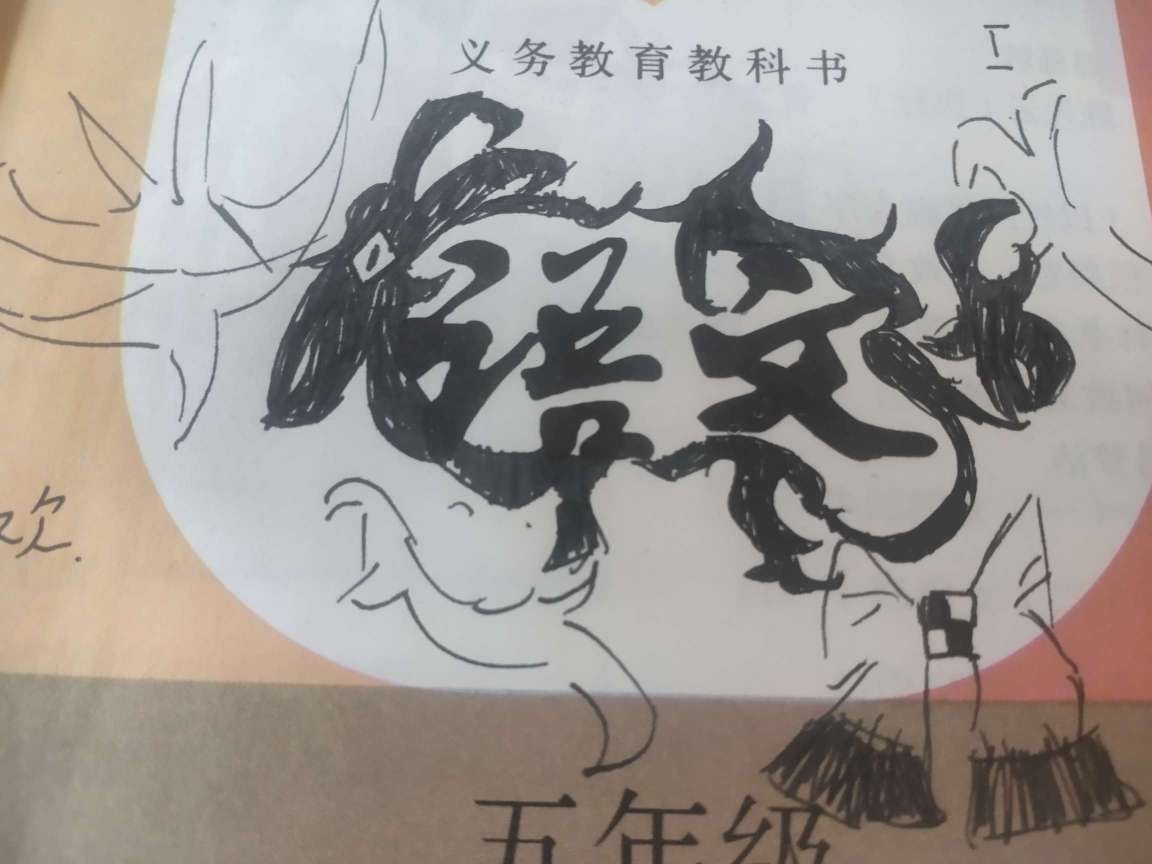 义务教育教科书
语文
欢.
五年级